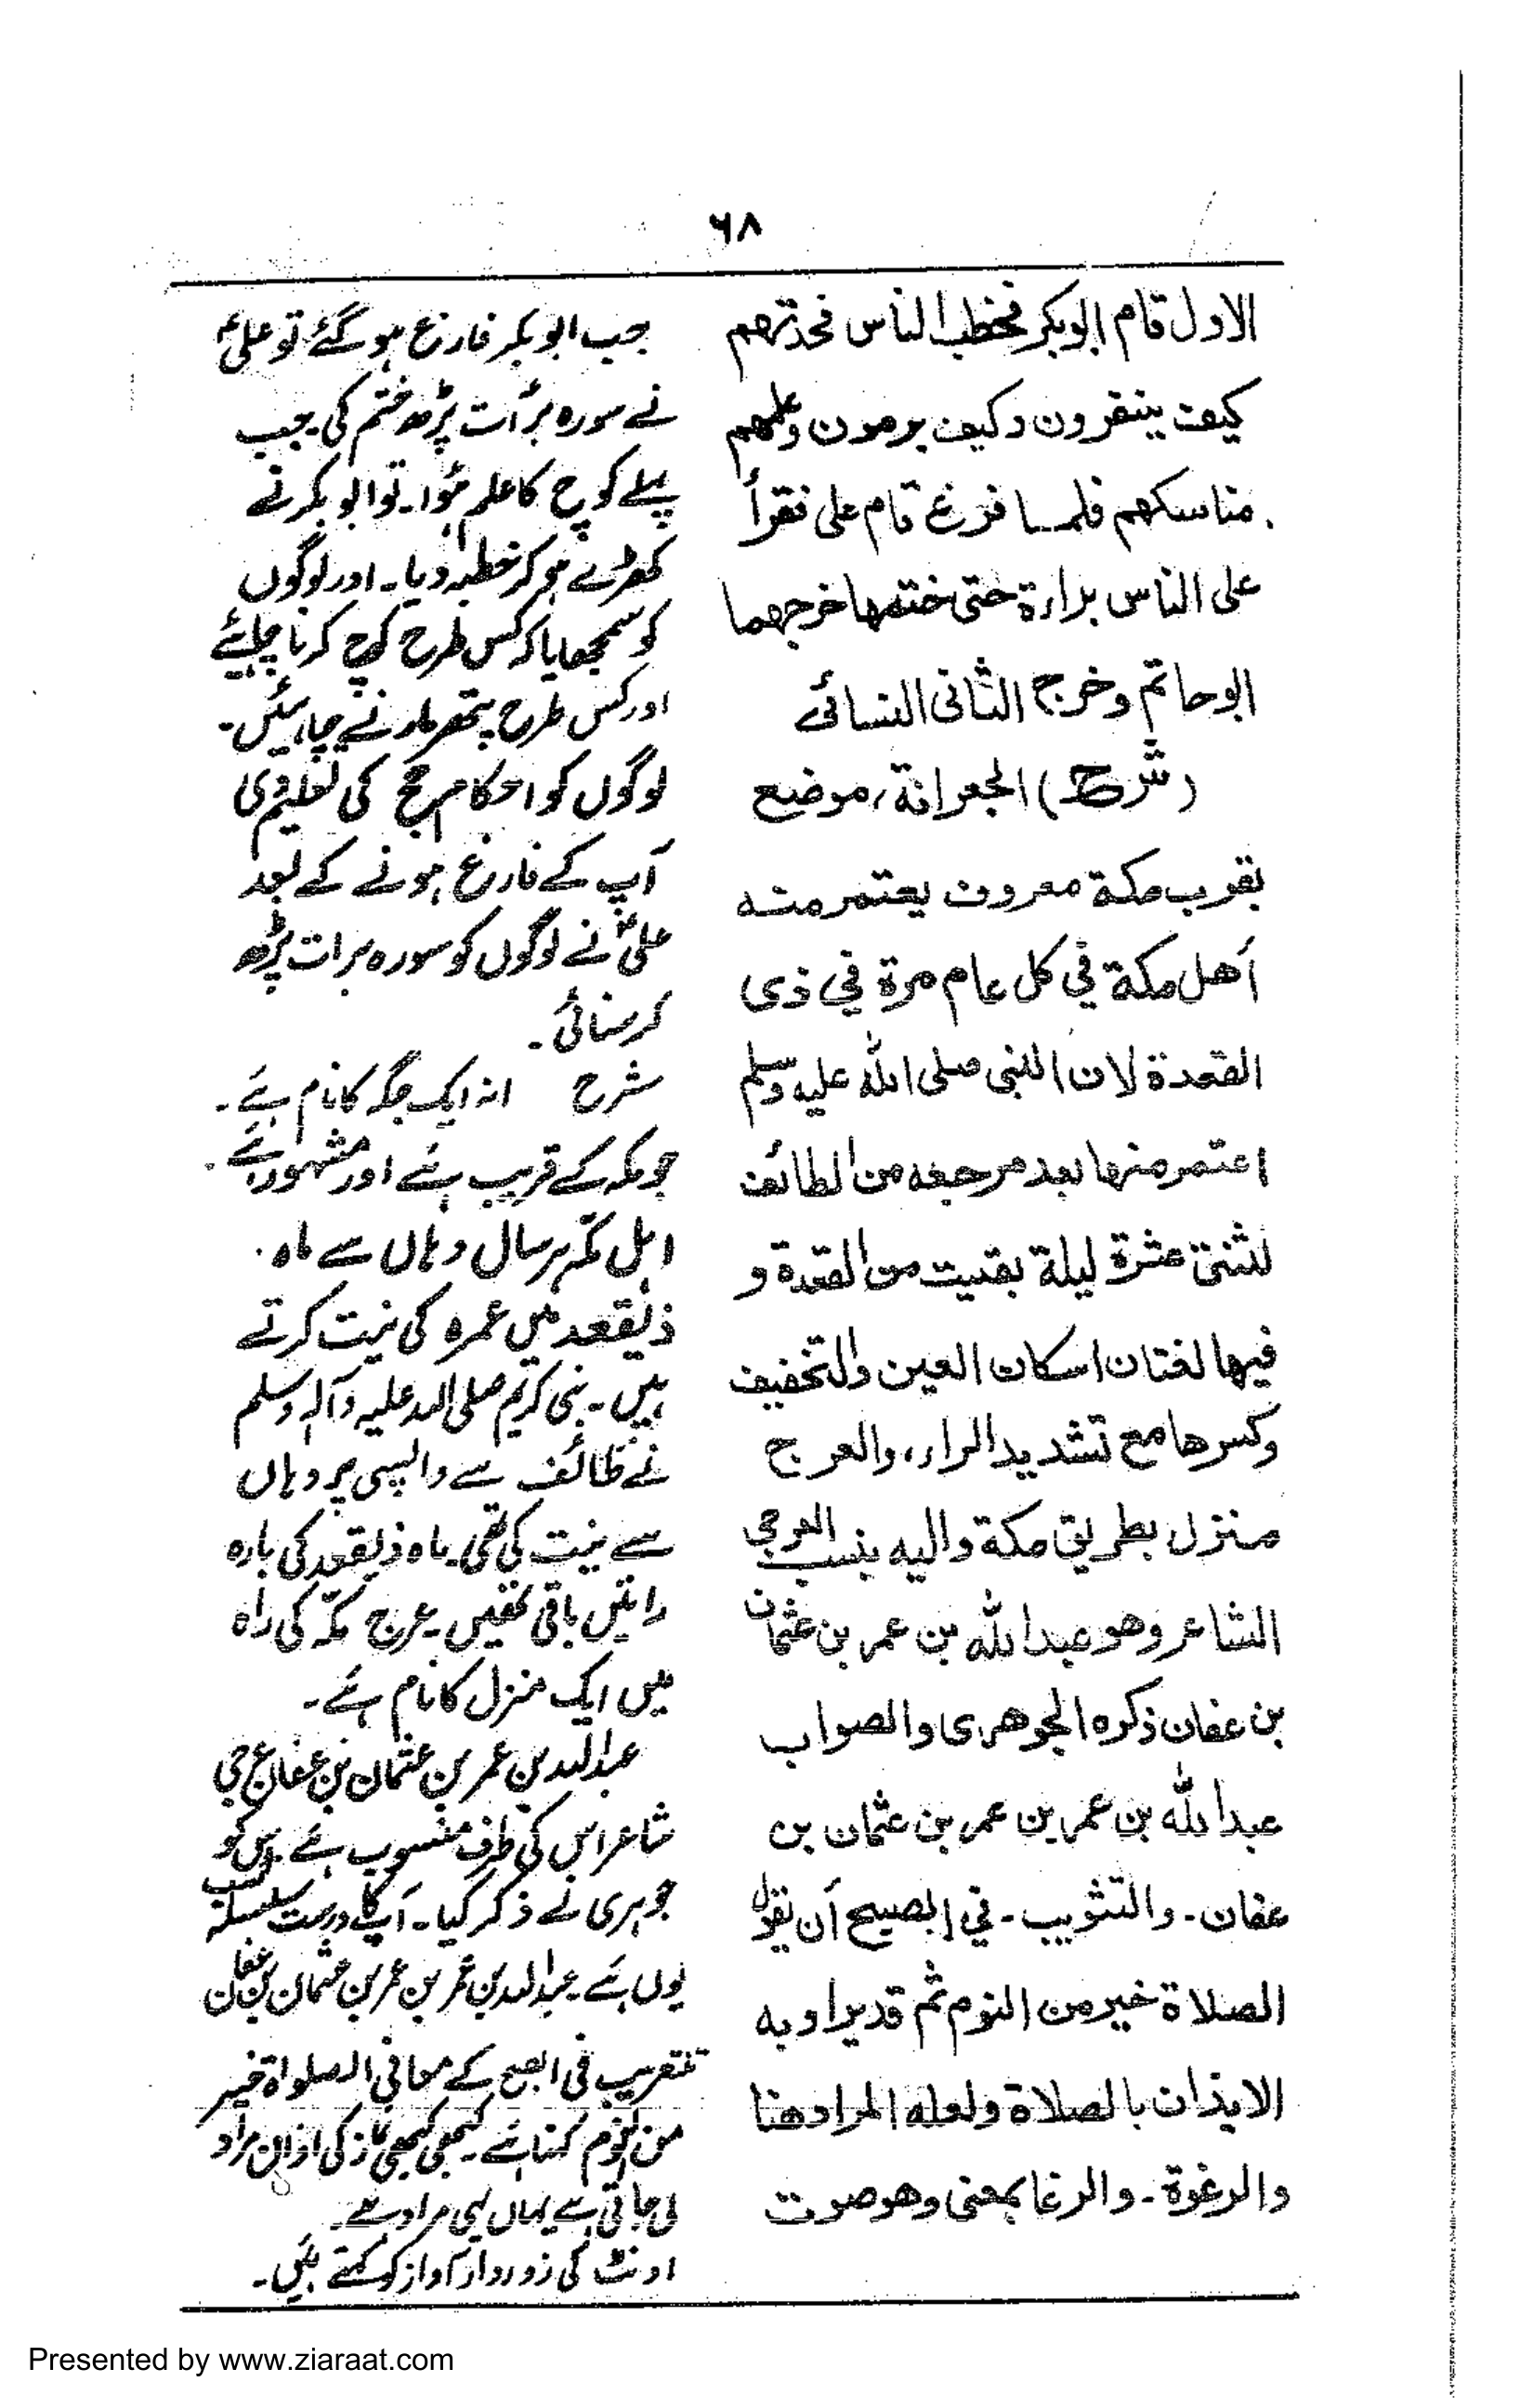 ٦٨
الاول قام ابوبكر فخطب الناس فحدثهم
كيف ينفرون وكيف يرمون وعلمهم
مناسكهم فلما فرغ قام على فقرأ
على الناس براءة حتى ختمها خرجهما
ابوحاتم وخرج الثانى النسائى
(شرح) الجعرانة، موضع
بقرب مكة معروف يعتمر منه
أهل مكة في كل عام مرة في ذى
القعدة لان النبى صلى الله عليه وسلم
اعتمر منها بعد مرجعه من الطائف
لثنتى عشرة ليلة بقيت من القعدة و
فيها لغتان اسكان العين والتخفيف
وكسرها مع تشديد الراء، والعرج
منزل بطريق مكة واليه ينسب العرجى
الشاعر وهو عبدالله بن عمر بن عثمان
بن عفان ذكره الجوهرى والصواب
عبدالله بن عمر بن عمر بن عثمان بن
عفان۔ والتثويب۔ في الصبح أن يقول
الصلاة خير من النوم ثم قد يراد به
الايذان بالصلاة ولعله المراد هنا
والرغوة۔ والرغا بمعنى وهو صوت
جب ابوبکر فارغ ہو گئے تو علیؑ
نے سورہ برأت پڑھ ختم کی۔ جب
پہلے کوچ کا علم ہوا۔ تو ابوبکر نے
کھڑے ہو کر خطبہ دیا۔ اور لوگوں
کو سمجھایا کہ کس طرح کوچ کرنا چاہیئے
اور کس طرح پتھر مارنے چاہئیں۔
لوگوں کو احکام حج کی تعلیم دی
آپ کے فارغ ہونے کے بعد
علیؑ نے لوگوں کو سورہ برات پڑھ
کر سنائی۔
شرح انہ ایک جگہ کا نام ہے۔
جو مکہ کے قریب ہے اور مشہور ہے۔
اہل مکہ ہر سال وہاں سے ماہ
ذیقعد میں عمرہ کی نیت کرتے
ہیں۔ نبی کریم صلی اللہ علیہ وآلہ وسلم
نے طائف سے واپسی پر وہاں
سے نیت کی تھی۔ ماہ ذیقعد کی بارہ
راتیں باقی تھیں۔ عرج مکہ کی راہ
میں ایک منزل کا نام ہے۔
عبداللہ بن عمر بن عثمان بن عفان عرجی
شاعر اس کی طرف منسوب ہے۔ اس کو
جوہری نے ذکر کیا۔ آپ کا درست سلسلہ نسب
یوں ہے۔ عبداللہ بن عمر بن عمر بن عثمان بن عفان
فی الصبح کے معانی الصلواة خیر
من النوم کہنا ہے۔ کبھی کبھی نماز کی اذان مراد
لی جاتی ہے یہاں یہی مراد ہے۔
اونٹ کی زوردار آواز کو کہتے ہیں۔
Presented by www.ziaraat.com